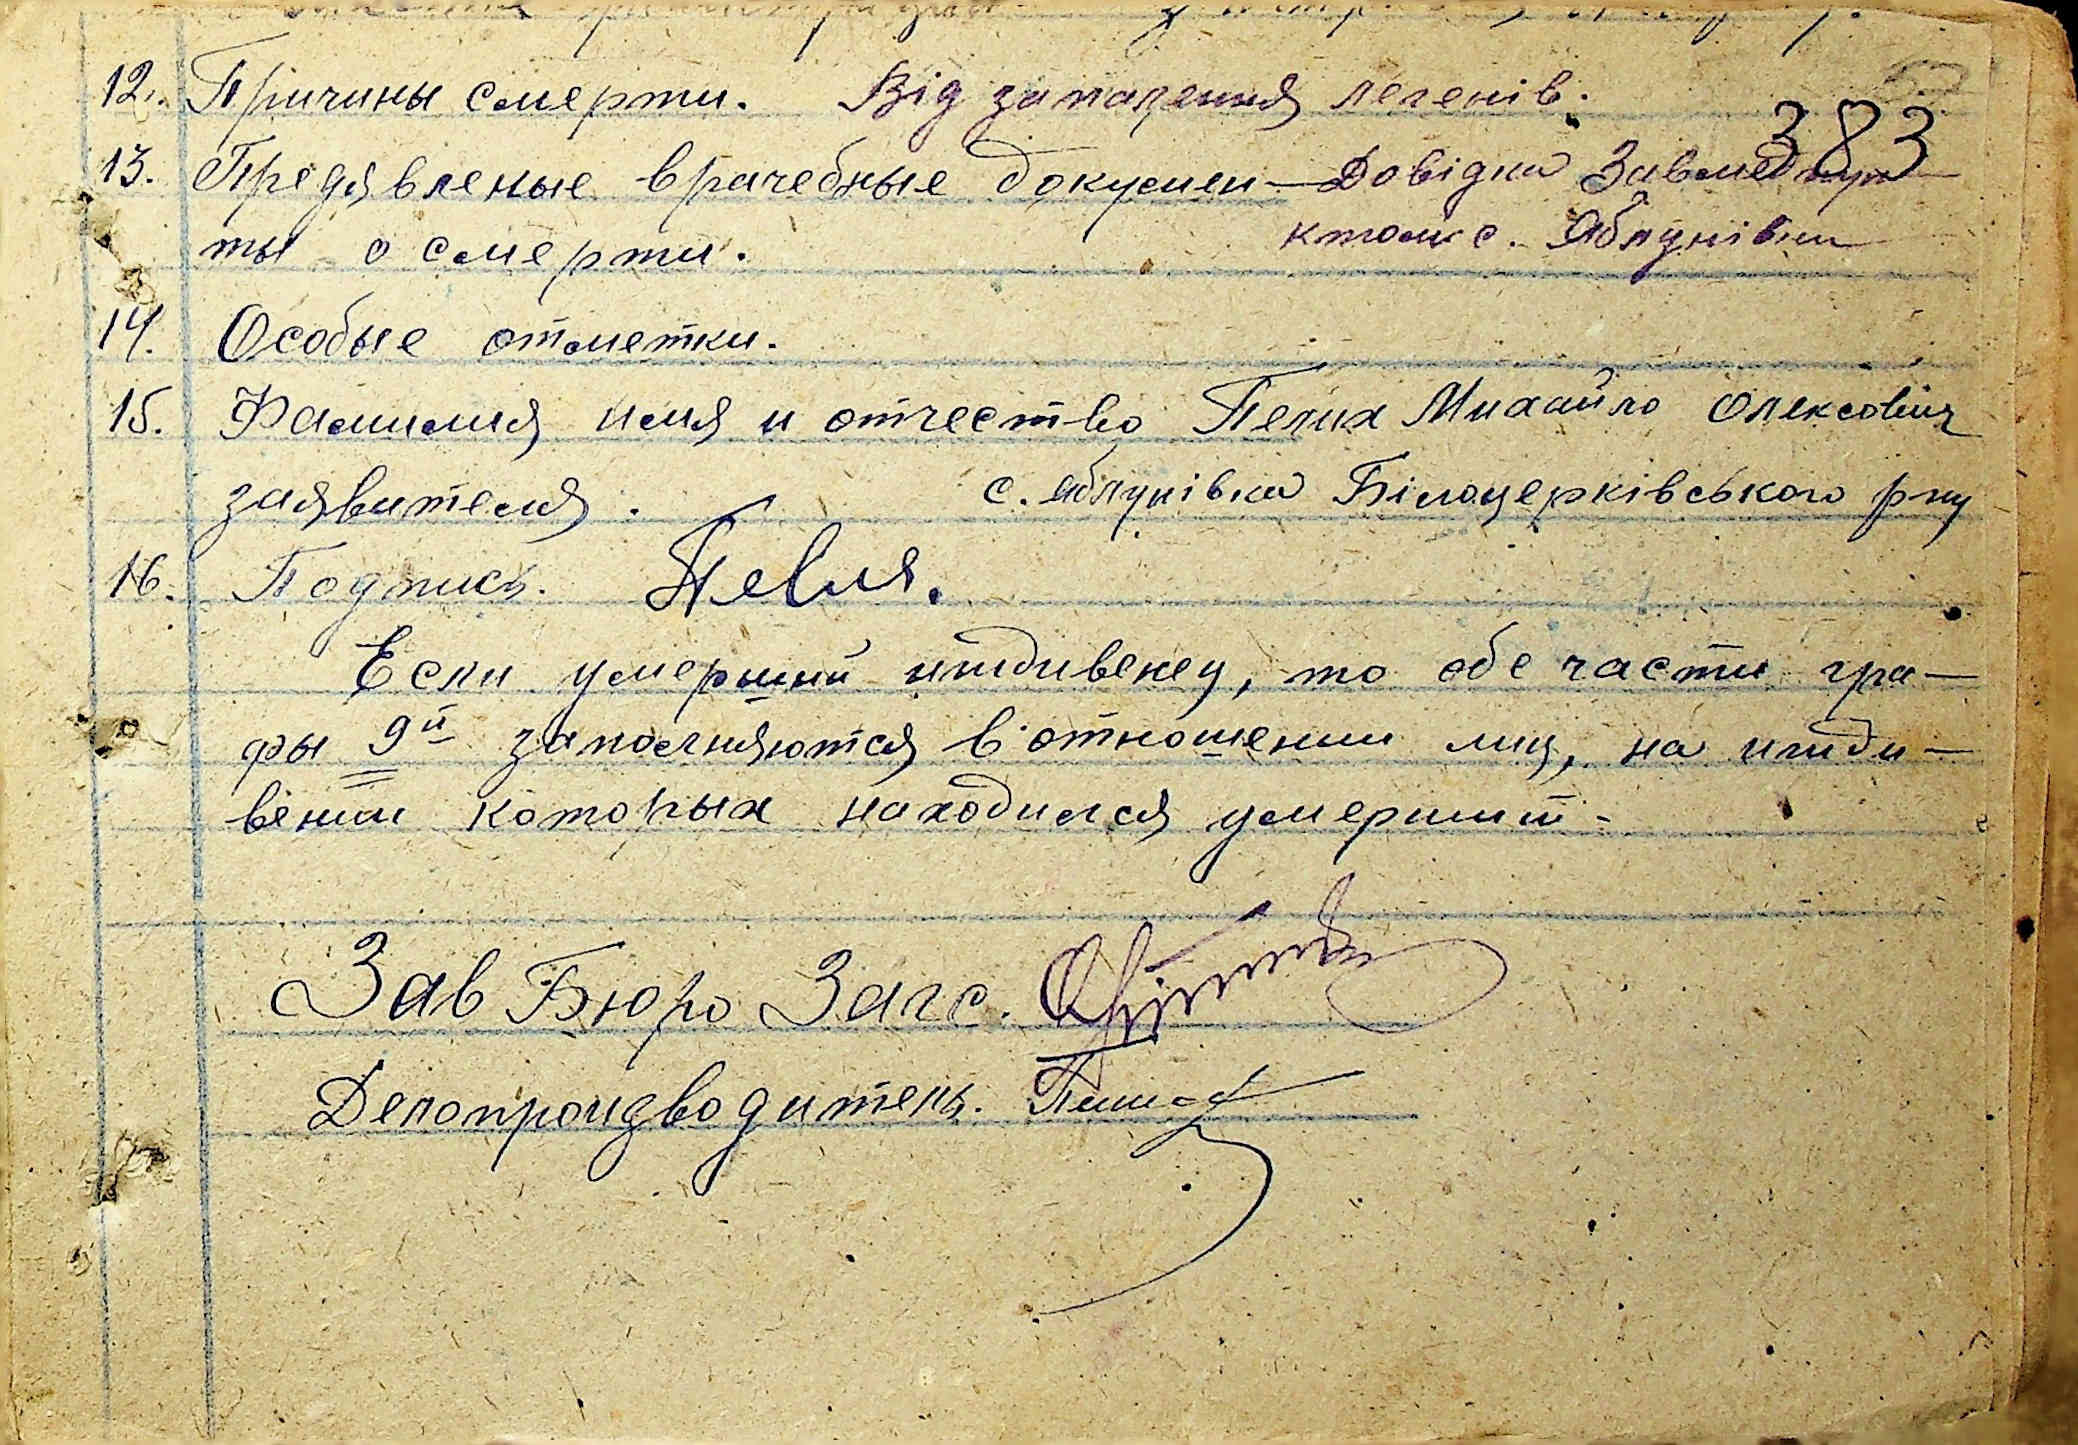 383
12. Причины смерти. Від запалення легенів.
13. Предявленые врачебные докумен- Довідка Завмедпун-
ты о смерти. ктом с. Яблунівки
14. Особые отметки.
15. Фамилия имя и отчество Пелих Михайло Олексовіч
заявителя. с. Яблунівка Білоцерківського р-ну
16. Подпись.
Если умерший иждивенец, то обе части гра-
фы 9й заполняются в отношении лиц, на ижди-
вении которых находился умерший.
Зав Бюро Загс.
Делопроизводитель.